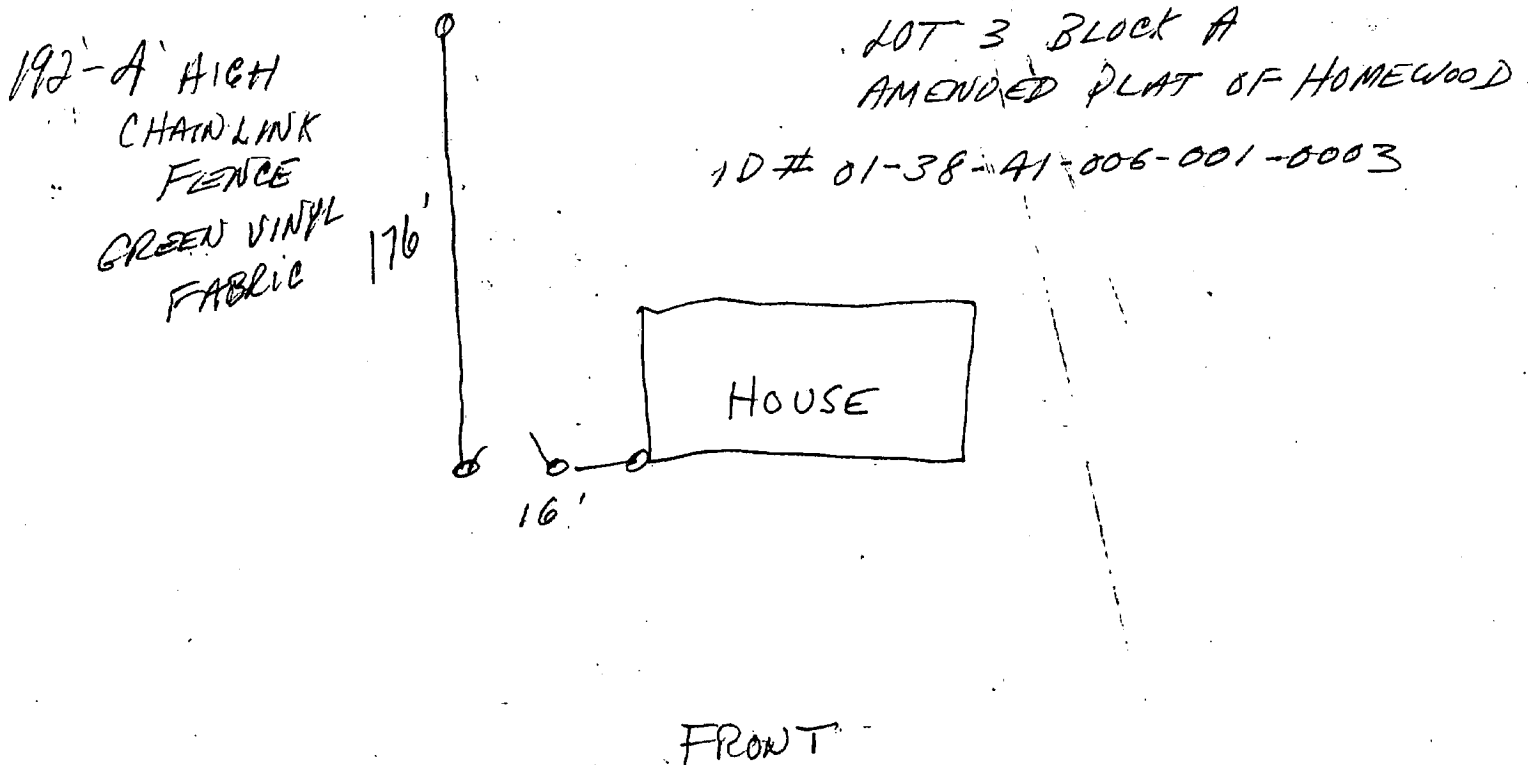 192'-4' HIGH
CHAINLINK
FENCE
GREEN VINYL
FABRIC
LOT 3 BLOCK A
AMENDED PLAT OF HOMEWOOD
ID # 01-38-41-006-001-0003
176'
HOUSE
16'
FRONT